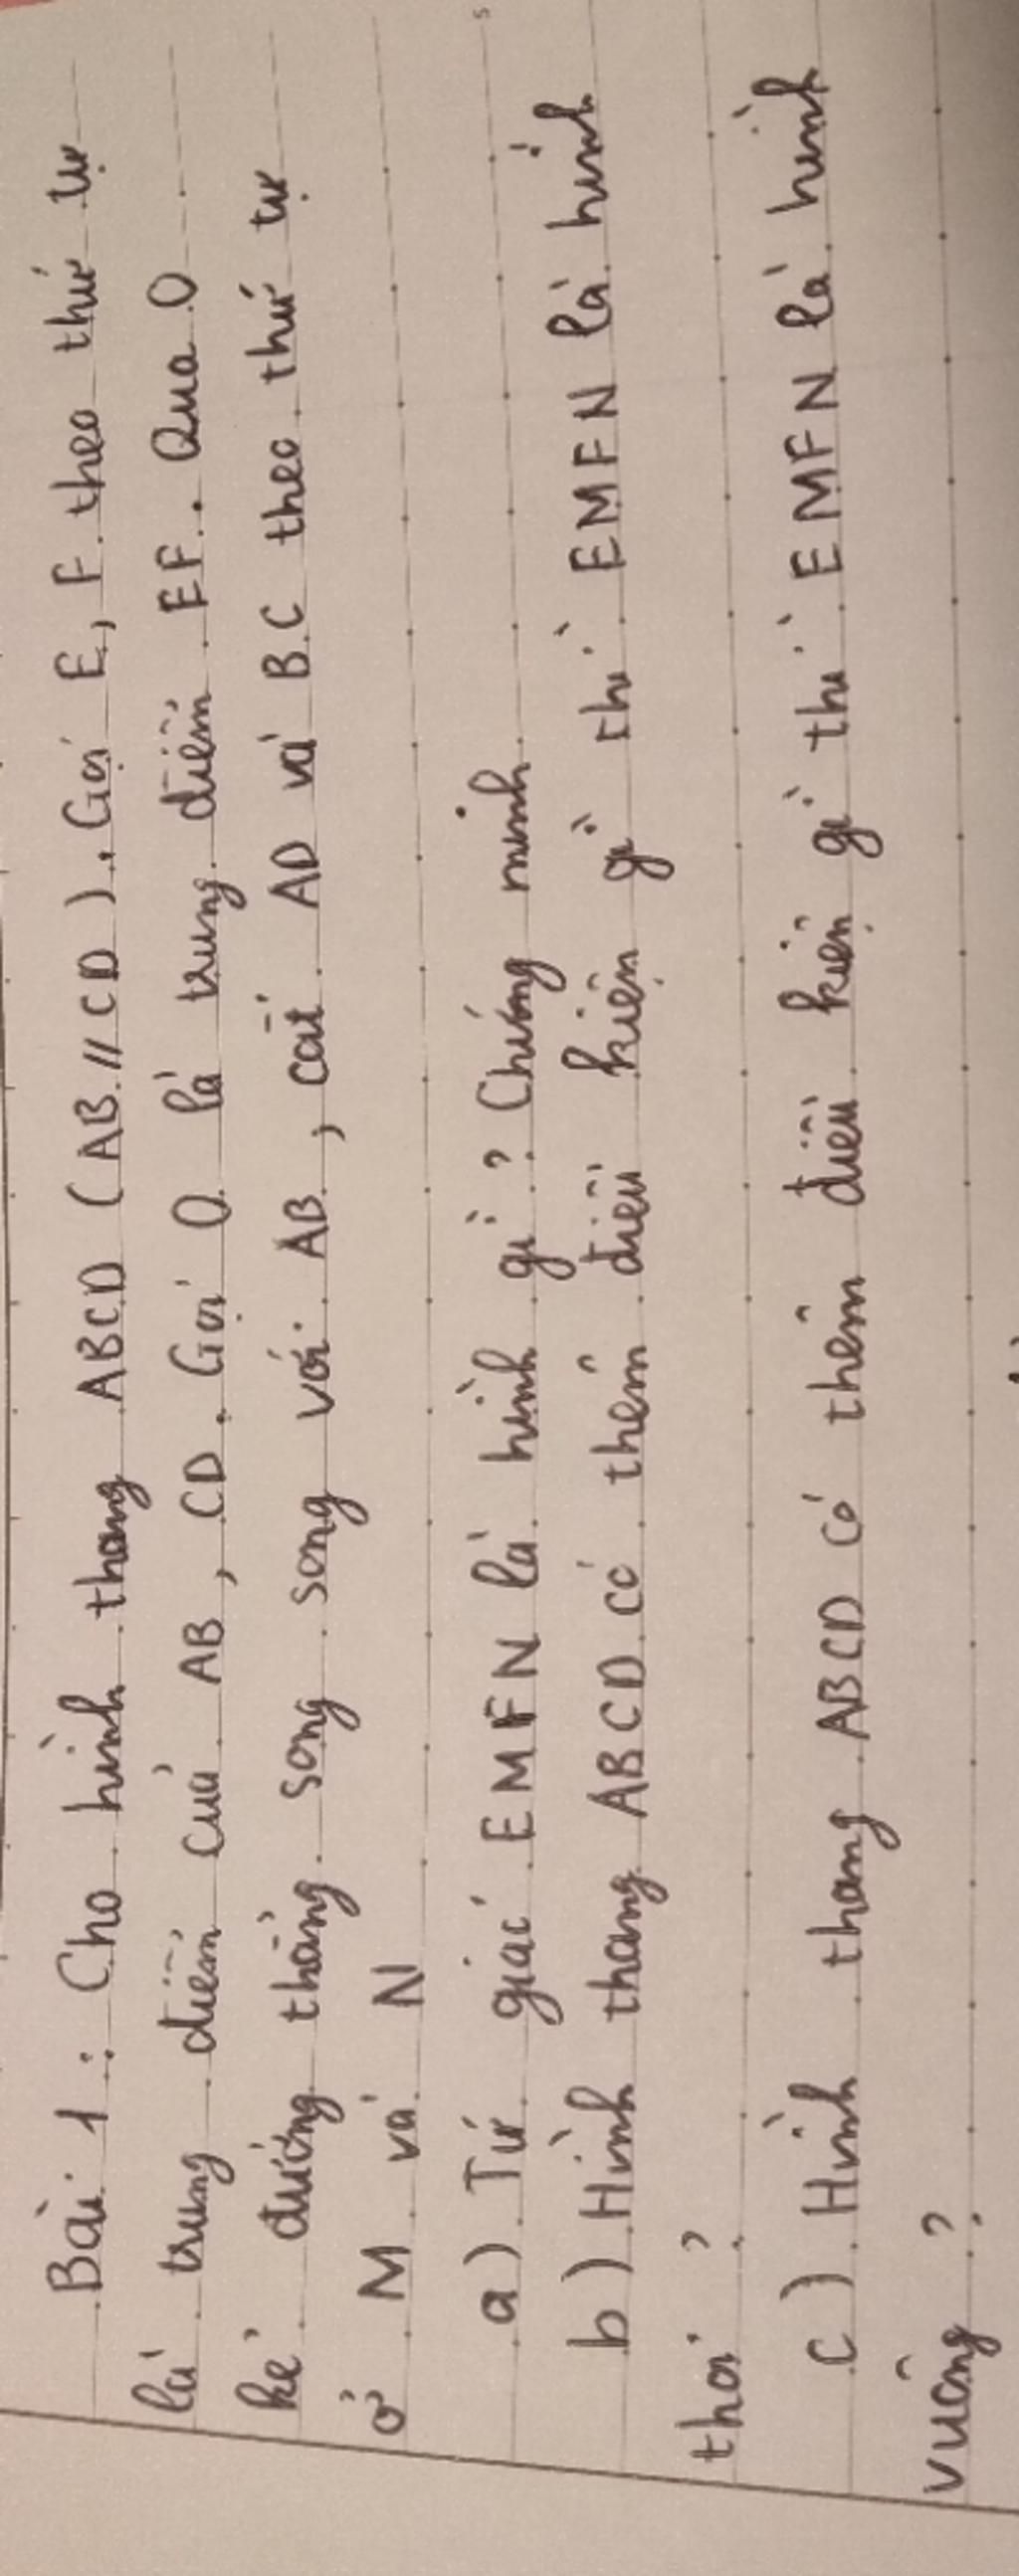 Bài 1 : Cho hình thang ABCD (AB // CD). Gọi E, F theo thứ tự
là trung điểm của AB, CD. Gọi O là trung điểm EF. Qua O
kẻ đường thẳng song song với AB, cắt AD và BC theo thứ tự
ở M và N
a) Tứ giác EMFN là hình gì? Chứng minh
b) Hình thang ABCD có thêm điều kiện gì thì EMFN là hình
thoi ?
c) Hình thang ABCD có thêm điều kiện gì thì EMFN là hình
vuông ?